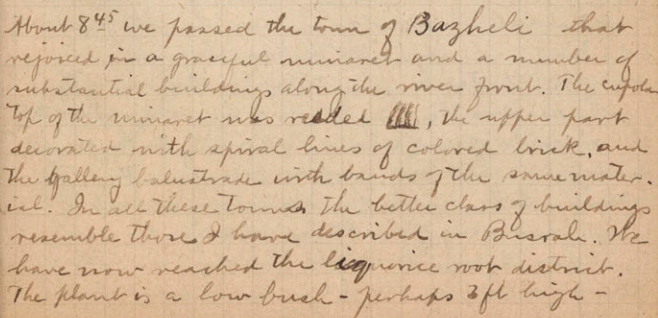 About 8 45 we passed the town of Bazheli that
rejoiced in a graceful minaret and a number of
substantial buildings along the river front. The cupola
top of the minaret was , the upper part
decorated with spiral lines of colored brick, and
the gallery balustrade with bands of the same mater-
ial. In all these towns the better class of buildings
resemble those I have described in Busrah. We
have now reached the liquorice root district.
The plant is a low bush - perhaps 3 ft high -